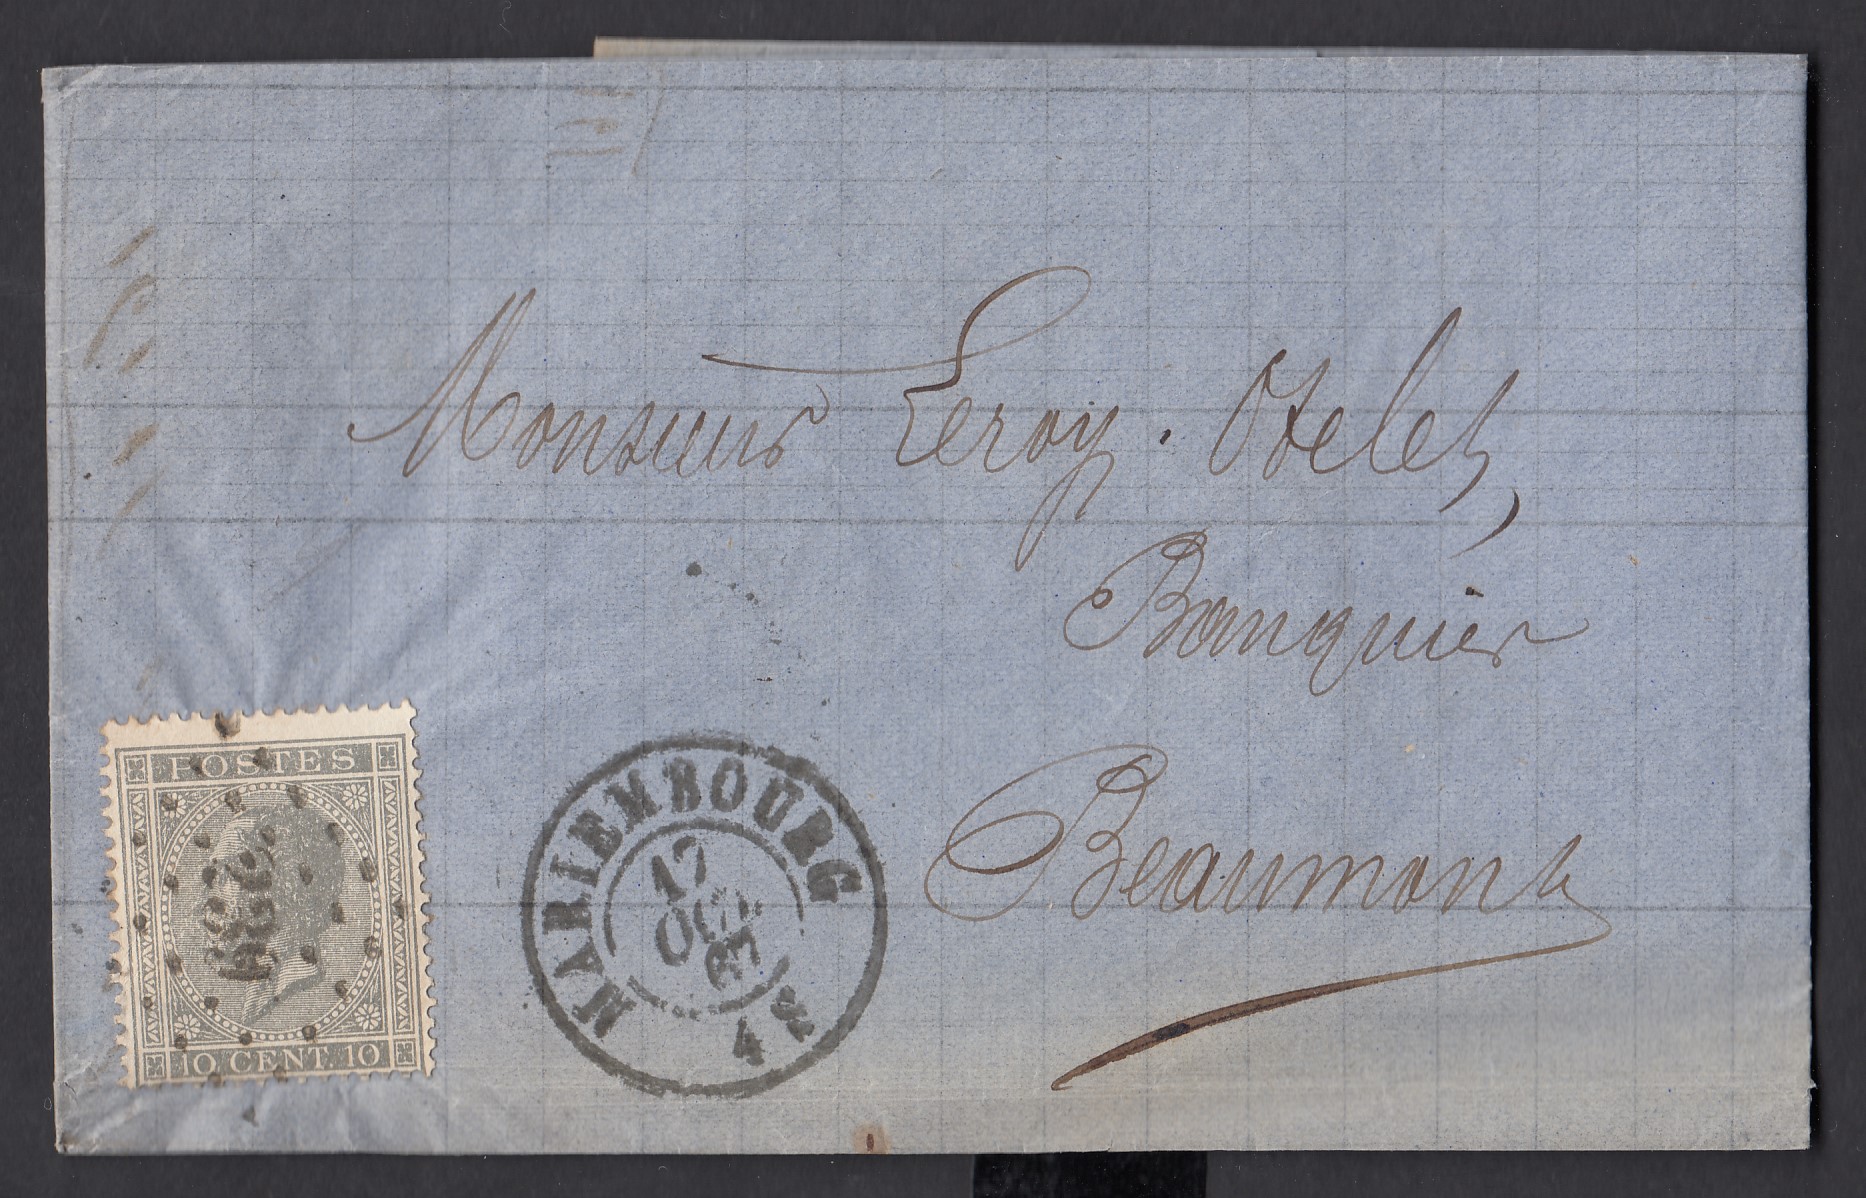 Monsieur Leroy. Otelet,
Banquier
Beaumont
POSTES
10 CENT. 10
MARIEMBOURG
17
OCT.
67
4 S